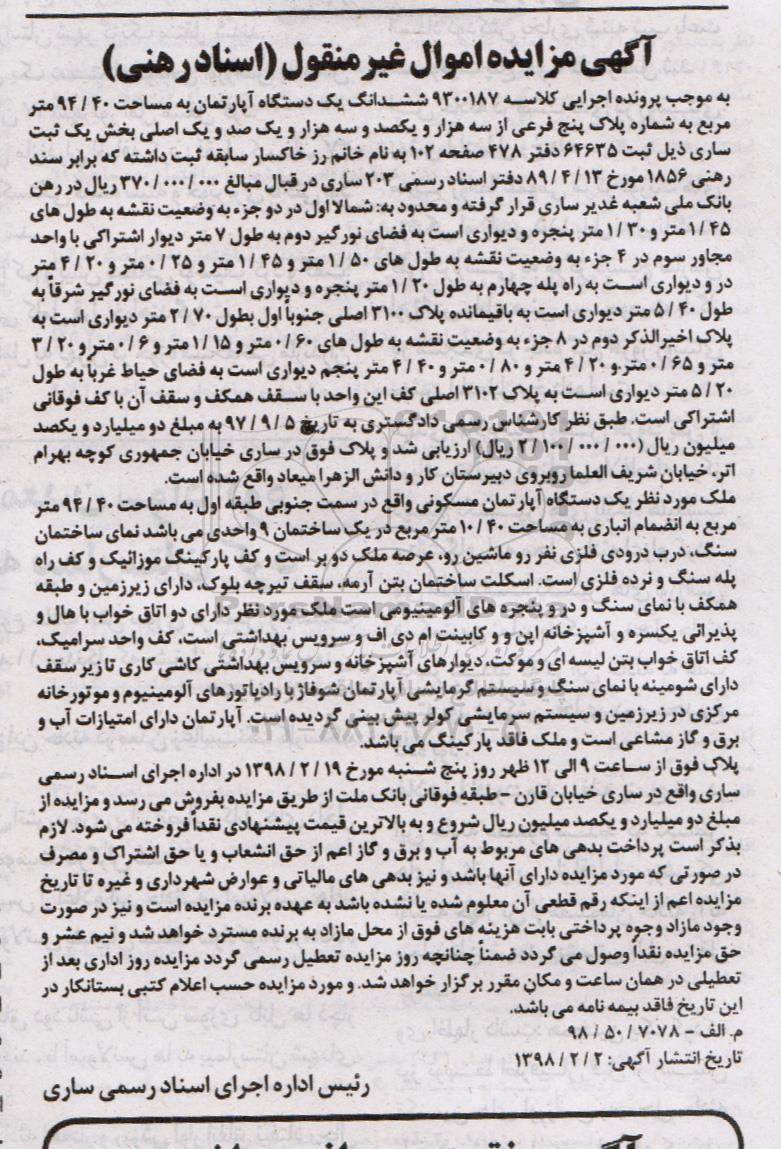 آگهی مزایده اموال غیر منقول (اسناد رهنی)
به موجب پرونده اجرایی کلاسه ۹۳۰۰۱۸۷ ششدانگ یک دستگاه آپارتمان به مساحت ۹۴/۴۰ متر
مربع به شماره پلاک پنج فرعی از سه هزار و یکصد و سه هزار و یک صد و یک اصلی بخش یک ثبت
ساری ذیل ثبت ۶۴۶۳۵ دفتر ۴۷۸ صفحه ۱۰۲ به نام خانم رز خاکسار سابقه ثبت داشته که برابر سند
رهنی ۱۸۵۶ مورخ ۸۹/۴/۱۳ دفتر اسناد رسمی ۲۰۳ ساری در قبال مبالغ ۳۷۰/۰۰۰/۰۰۰ ریال در رهن
بانک ملی شعبه غدیر ساری قرار گرفته و محدود به: شمالا اول در دو جزء به وضعیت نقشه به طول های
۱/۴۵ متر و ۱/۳۰ متر پنجره و دیواری است به فضای نورگیر دوم به طول ۷ متر دیوار اشتراکی با واحد
مجاور سوم در ۴ جزء به وضعیت نقشه به طول های ۱/۵۰ متر و ۱/۴۵ متر و ۰/۲۵ متر و ۴/۲۰ متر
در و دیواری است به راه پله چهارم به طول ۱/۲۰ متر پنجره و دیواری است به فضای نورگیر شرقاً به
طول ۵/۴۰ متر دیواری است به باقیمانده پلاک ۳۱۰۰ اصلی جنوباً اول بطول ۲/۷۰ متر دیواری است به
پلاک اخیرالذکر دوم در ۸ جزء به وضعیت نقشه به طول های ۰/۶۰ متر و ۱/۱۵ متر و ۰/۶ متر و ۳/۲۰
متر و ۰/۶۵ متر و ۴/۲۰ متر و ۰/۸۰ متر و ۴/۴۰ متر پنجم دیواری است به فضای حیاط غرباً به طول
۵/۲۰ متر دیواری است به پلاک ۳۱۰۲ اصلی کف این واحد با سقف همکف و سقف آن با کف فوقانی
اشتراکی است. طبق نظر کارشناس رسمی دادگستری به تاریخ ۹۷/۹/۵ به مبلغ دو میلیارد و یکصد
میلیون ریال (۲/۱۰۰/۰۰۰/۰۰۰ ریال) ارزیابی شد و پلاک فوق در ساری خیابان جمهوری کوچه بهرام
اتر، خیابان شریف العلما روبروی دبیرستان کار و دانش الزهرا میعاد واقع شده است.
ملک مورد نظر یک دستگاه آپارتمان مسکونی واقع در سمت جنوبی طبقه اول به مساحت ۹۴/۴۰ متر
مربع به انضمام انباری به مساحت ۱۰/۴۰ متر مربع در یک ساختمان ۹ واحدی می باشد نمای ساختمان
سنگ، درب درودی فلزی نفر رو ماشین رو، عرصه ملک دو بر است و کف پارکینگ موزائیک و کف راه
پله سنگ و نرده فلزی است. اسکلت ساختمان بتن آرمه، سقف تیرچه بلوک، دارای زیرزمین و طبقه
همکف با نمای سنگ و در و پنجره های آلومینیومی است ملک مورد نظر دارای دو اتاق خواب با هال و
پذیرائی یکسره و آشپزخانه اپن و و کابینت ام دی اف و سرویس بهداشتی است، کف واحد سرامیک،
کف اتاق خواب بتن لیسه ای و موکت، دیوارهای آشپزخانه و سرویس بهداشتی کاشی کاری تا زیر سقف
دارای شومینه با نمای سنگ و سیستم گرمایشی آپارتمان شوفاژ با رادیاتورهای آلومینیوم و موتورخانه
مرکزی در زیرزمین و سیستم سرمایشی کولر پیش بینی گردیده است. آپارتمان دارای امتیازات آب و
برق و گاز مشاعی است و ملک فاقد پارکینگ می باشد.
پلاک فوق از ساعت ۹ الی ۱۲ ظهر روز پنج شنبه مورخ ۱۳۹۸/۲/۱۹ در اداره اجرای اسناد رسمی
ساری واقع در ساری خیابان قارن - طبقه فوقانی بانک ملت از طریق مزایده بفروش می رسد و مزایده از
مبلغ دو میلیارد و یکصد میلیون ریال شروع و به بالاترین قیمت پیشنهادی نقداً فروخته می شود. لازم
بذکر است پرداخت بدهی های مربوط به آب و برق و گاز اعم از حق انشعاب و یا حق اشتراک و مصرف
در صورتی که مورد مزایده دارای آنها باشد و نیز بدهی های مالیاتی و عوارض شهرداری و غیره تا تاریخ
مزایده اعم از اینکه رقم قطعی آن معلوم شده یا نشده باشد به عهده برنده مزایده است و نیز در صورت
وجود مازاد وجوه پرداختی بابت هزینه های فوق از محل مازاد به برنده مسترد خواهد شد و نیم عشر و
حق مزایده نقداً وصول می گردد ضمناً چنانچه روز مزایده تعطیل رسمی گردد مزایده روز اداری بعد از
تعطیلی در همان ساعت و مکان مقرر برگزار خواهد شد. و مورد مزایده حسب اعلام کتبی بستانکار در
این تاریخ فاقد بیمه نامه می باشد.
م. الف - ۹۸/۵۰/۷۰۷۸
تاریخ انتشار آگهی: ۱۳۹۸/۲/۲
رئیس اداره اجرای اسناد رسمی ساری